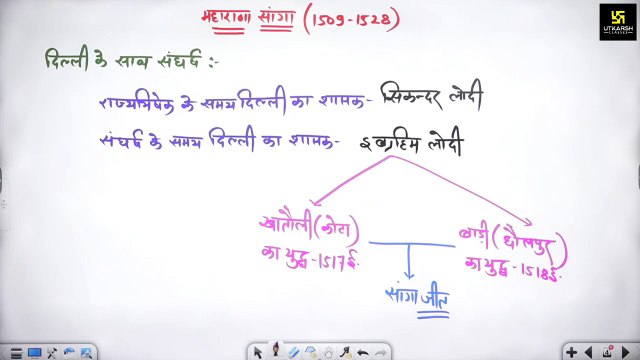 महाराणा सांगा (1509-1528)
UTKARSH
CLASSES
दिल्ली के साथ संघर्ष :-
राज्यभिषेक के समय दिल्ली का शासक- सिकन्दर लोदी
संघर्ष के समय दिल्ली का शासक- इब्राहिम लोदी
खातौली (कोटा)
का युद्ध -1517ई.
बाड़ी (धौलपुर)
का युद्ध - 1518ई.
सांगा जीत